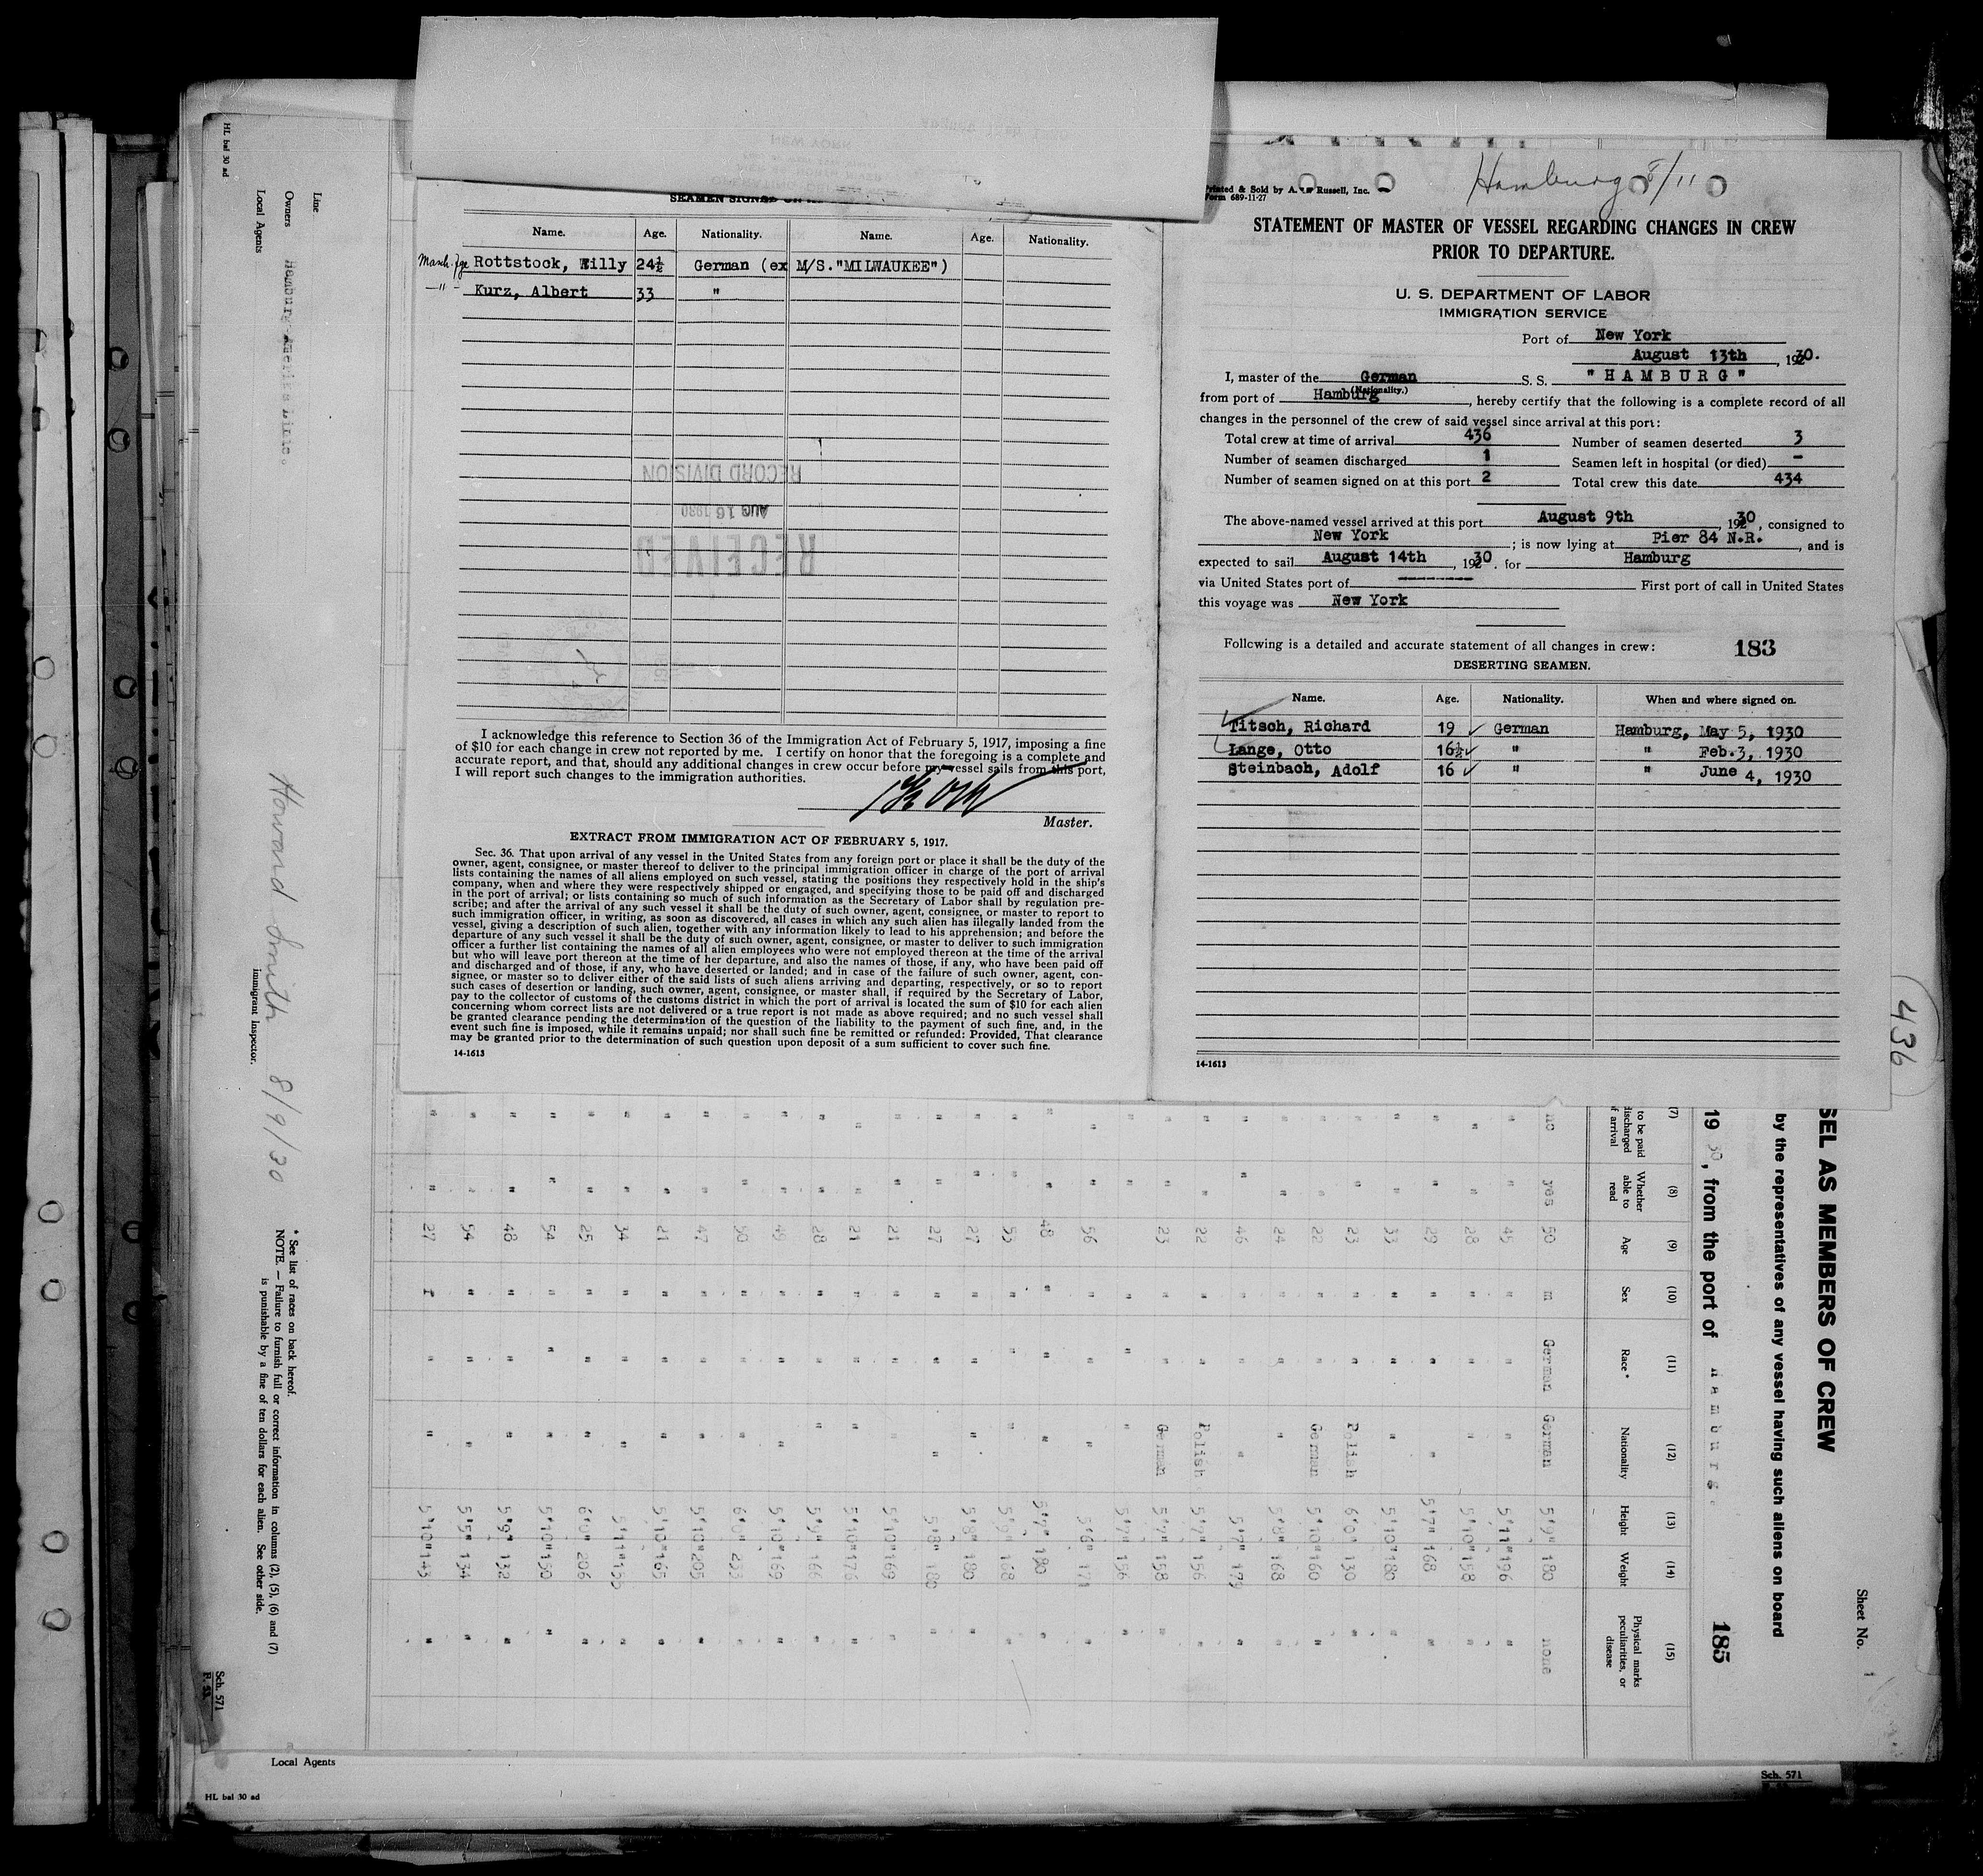 SEAMEN SIGNED ON
Name. Age. Nationality. Name. Age. Nationality.
Rottstock, Willy 24½ German (ex M/S."MILWAUKEE")
-"- Kurz, Albert 33 "
RECORD DIVISION
AUG 16 1930
RECEIVED
I acknowledge this reference to Section 36 of the Immigration Act of February 5, 1917, imposing a fine
of $10 for each change in crew not reported by me. I certify on honor that the foregoing is a complete and
accurate report, and that, should any additional changes in crew occur before my vessel sails from this port,
I will report such changes to the immigration authorities.
Master.
EXTRACT FROM IMMIGRATION ACT OF FEBRUARY 5, 1917.
Sec. 36. That upon arrival of any vessel in the United States from any foreign port or place it shall be the duty of the
owner, agent, consignee, or master thereof to deliver to the principal immigration officer in charge of the port of arrival
lists containing the names of all aliens employed on such vessel, stating the positions they respectively hold in the ship's
company, when and where they were respectively shipped or engaged, and specifying those to be paid off and discharged
in the port of arrival; or lists containing so much of such information as the Secretary of Labor shall by regulation pre-
scribe; and after the arrival of any such vessel it shall be the duty of such owner, agent, consignee, or master to report to
such immigration officer, in writing, as soon as discovered, all cases in which any such alien has illegally landed from the
vessel, giving a description of such alien, together with any information likely to lead to his apprehension; and before the
departure of any such vessel it shall be the duty of such owner, agent, consignee, or master to deliver to such immigration
officer a further list containing the names of all alien employees who were not employed thereon at the time of the arrival
but who will leave port thereon at the time of her departure, and also the names of those, if any, who have been paid off
and discharged and of those, if any, who have deserted or landed; and in case of the failure of such owner, agent, con-
signee, or master so to deliver either of the said lists of such aliens arriving and departing, respectively, or so to report
such cases of desertion or landing, such owner, agent, consignee, or master shall, if required by the Secretary of Labor,
pay to the collector of customs of the customs district in which the port of arrival is located the sum of $10 for each alien
concerning whom correct lists are not delivered or a true report is not made as above required; and no such vessel shall
be granted clearance pending the determination of the question of the liability to the payment of such fine, and, in the
event such fine is imposed, while it remains unpaid; nor shall such fine be remitted or refunded: Provided, That clearance
may be granted prior to the determination of such question upon deposit of a sum sufficient to cover such fine.
14-1613
Hamburg 8/11
Printed & Sold by A. Russell, Inc.
Form 689-11-27
STATEMENT OF MASTER OF VESSEL REGARDING CHANGES IN CREW
PRIOR TO DEPARTURE.
U. S. DEPARTMENT OF LABOR
IMMIGRATION SERVICE
Port of New York
August 13th, 1930.
I, master of the German S. S. "HAMBURG"
(Nationality.)
from port of Hamburg, hereby certify that the following is a complete record of all
changes in the personnel of the crew of said vessel since arrival at this port:
Total crew at time of arrival 436 Number of seamen deserted 3
Number of seamen discharged 1 Seamen left in hospital (or died) -
Number of seamen signed on at this port 2 Total crew this date 434
The above-named vessel arrived at this port August 9th, 1930, consigned to
New York; is now lying at Pier 84 N.R., and is
expected to sail August 14th, 1930. for Hamburg
via United States port of --------- First port of call in United States
this voyage was New York
Following is a detailed and accurate statement of all changes in crew: 183
DESERTING SEAMEN.
Name. Age. Nationality. When and where signed on.
Titsch, Richard 19 German Hamburg, May 5, 1930
Lange, Otto 16½ " " Feb. 3, 1930
Steinbach, Adolf 16 " " June 4, 1930
14-1613
436
Sheet No. 1
SEL AS MEMBERS OF CREW
by the representatives of any vessel having such aliens on board
1930, from the port of Hamburg. 185
(7) (8) (9) (10) (11) (12) (13) (14) (15)
to be paid discharged of arrival
Whether able to read
Age
Sex
Race*
Nationality
Height
Weight
Physical marks peculiarities, or disease
no yes 50 m German German 5'9" 180 none
" " 45 " " " 5'11" 196 "
" " 28 " " " 5'10" 158 "
" " 29 " " " 5'7" 168 "
" " 33 " " " 5'10" 180 "
" " 23 " " Polish 6'0" 130 "
" " 22 " " German 5'10" 160 "
" " 24 " " " 5'8" 168 "
" " 46 " " " 5'7" 179 "
" " 22 " " Polish 5'7" 156 "
" " 23 " " German 5'7" 158 "
" " " " " 5'7" 156 "
" " 56 " " " 5'6" 171 "
" " 48 " " " 5'7" 190 "
" " 53 " " " 5'9" 168 "
" " 27 " " " 5'8" 180 "
" " 27 " " " 5'8" 180 "
" " 21 " " " 5'10" 169 "
" " 21 " " " 5'10" 176 "
" " 28 " " " 5'9" 166 "
" " 49 " " " 5'10" 169 "
" " 50 " " " 6'0" 233 "
" " 47 " " " 5'10" 205 "
" " 21 " " " 5'10" 165 "
" " 34 " " " 5'11" 155 "
" " 25 " " " 6'0" 206 "
" " 54 " " " 5'10" 150 "
" " 48 " " " 5'9" 132 "
" " 54 " " " 5'5" 134 "
" " 27 f " " 5'10" 143 "
Line
Owners Hamburg-Amerika Linie.
Local Agents
HL bal 30 ad
Howard Smith 8/9/30
immigrant Inspector.
* See list of races on back hereof.
NOTE. — Failure to furnish full or correct information in columns (2), (5), (6) and (7)
is punishable by a fine of ten dollars for each alien. See other side.
Sch. 571
F 53.
Local Agents
HL bal 30 ad
Sch. 571